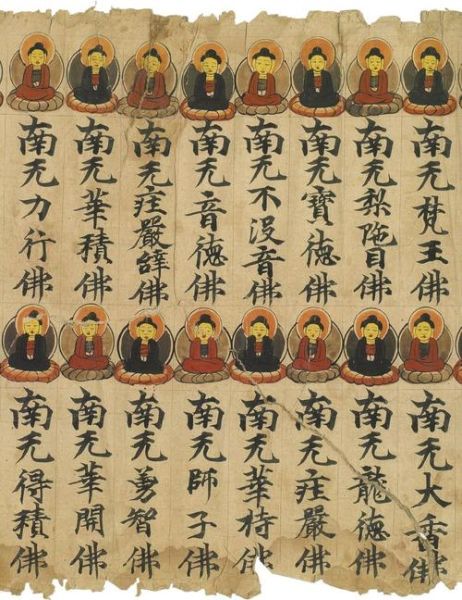 南无梵王佛
南无梨陁目佛
南无寶德佛
南无不没音佛
南无音德佛
南无庄嚴辝佛
南无華積佛
南无力行佛
南无大香佛
南无龍德佛
南无庄嚴佛
南无華持佛
南无師子佛
南无勇智佛
南无華開佛
南无得積佛